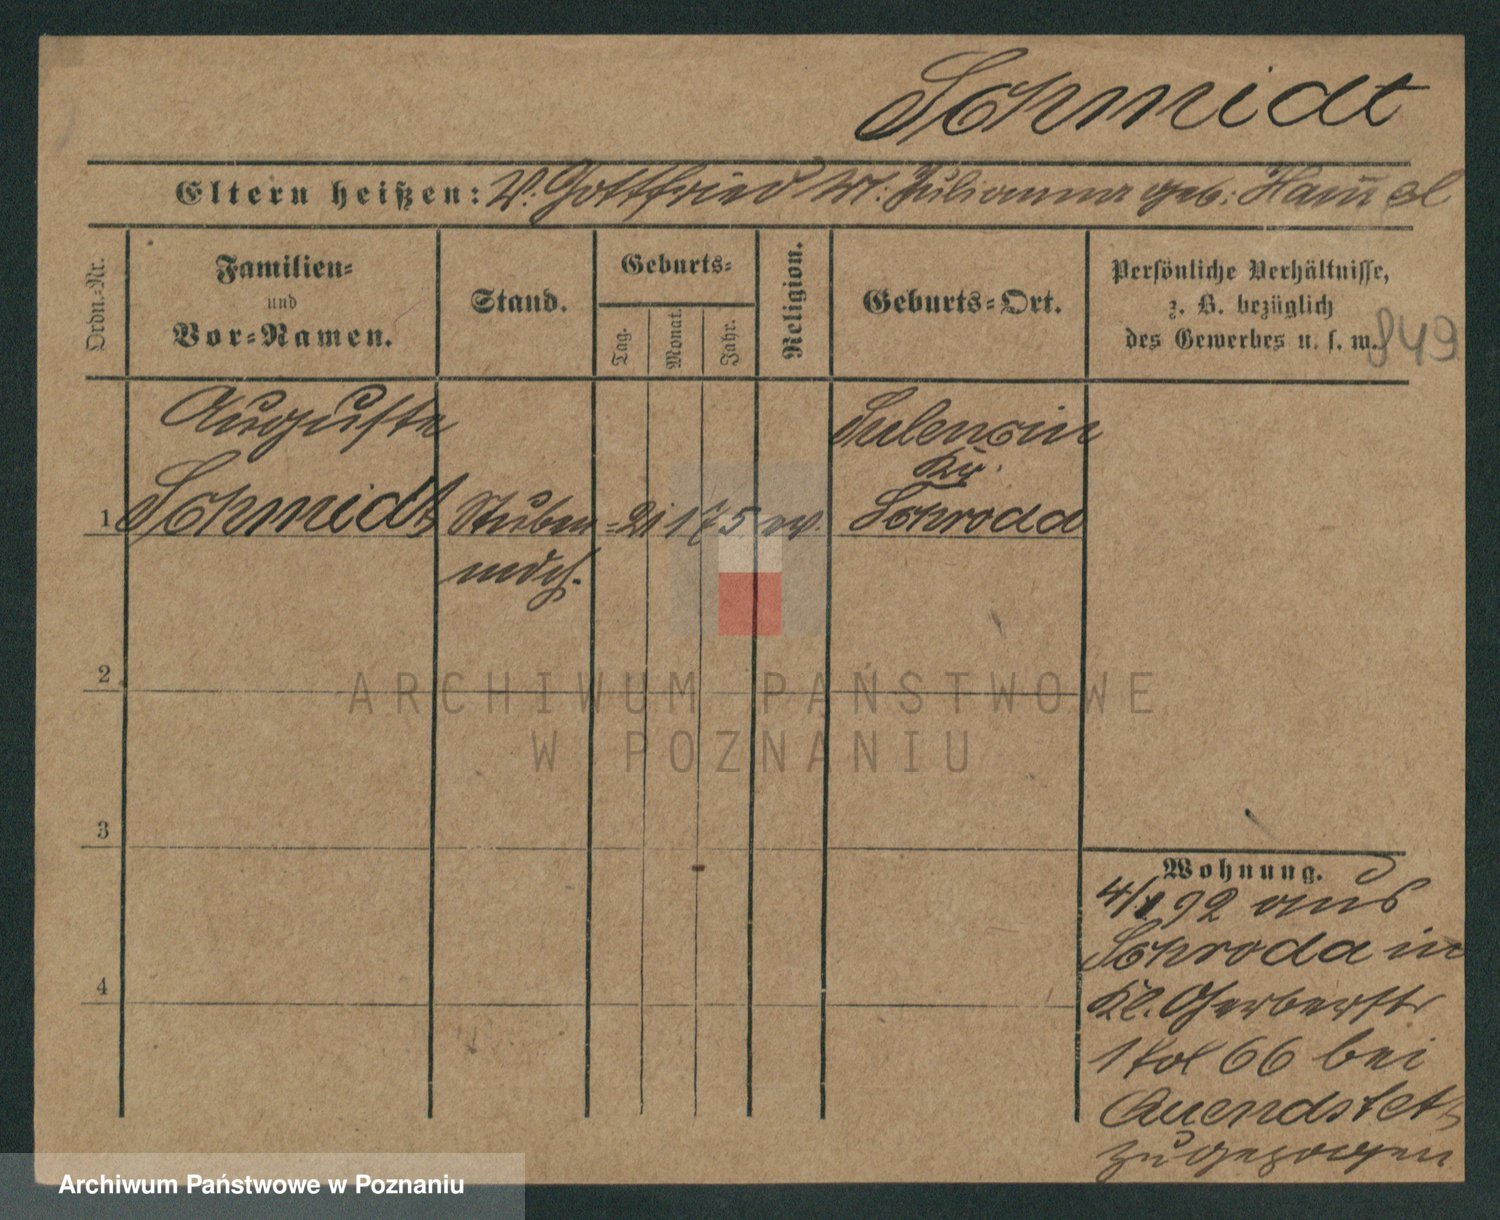 Schmidt
Eltern heißen: V. Gottfried M. Julianna geb: Hansel
Ordn.-Nr.
Familien-
und
Vor-Namen.
Stand.
Geburts-
Tag.
Monat.
Jahr.
Religion.
Geburts-Ort.
Persönliche Verhältnisse,
z. B. bezüglich
des Gewerbes u. s. w.
849
Auguste
Schmidt
Stuben=
mdch.
21 1 75
ev.
Sulencin
Kr.
Schroda
1
2
3
4
Wohnung.
92 aus
Schroda in
Kl. Gerberstr
1 fol 66 bei
zugezogen
ARCHIWUM PAŃSTWOWE
W POZNANIU
Archiwum Państwowe w Poznaniu